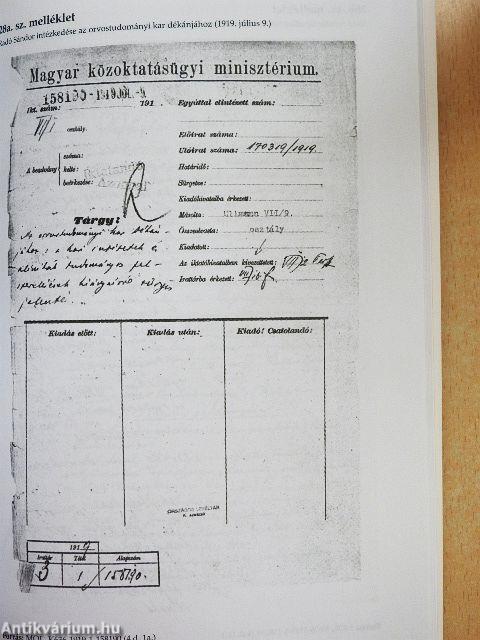 28a. sz. melléklet
Radó Sándor intézkedése az orvostudományi kar dékánjához (1919. július 9.)
Magyar közoktatásügyi minisztérium.
158190-1919 JUL. -9.
Ikt. szám: 191
Egyúttal elintézett szám:
VI/1 osztály.
Előirat száma:
Utóirat száma: 170319/1919.
A beadvány
száma:
kelte:
beérkezése:
Határidő:
Sürgetve:
Kiadóhivatalba érkezett:
Másolta: Ullmann VII/9.
Összeolvasta: osztály
Kiadatott:
Az iktatóhivatalban kivezettetett:
Irattárba érkezett:
Tárgy:
Az orvostudományi kar dékán-
jához: a kari intézetek és
klinikák tudományos fel-
szerelések hiányairól sürgős
jelentést.
Kiadás előtt:
Kiadás után:
Kiadó! Csatolandó:
ORSZÁGOS LEVÉLTÁR
1919
Irattár
Tétel
Alapszám
3
1
158190.
Forrás: MOL K636-1919-1-158190 (4.d. 1a.)
Antikvárium.hu